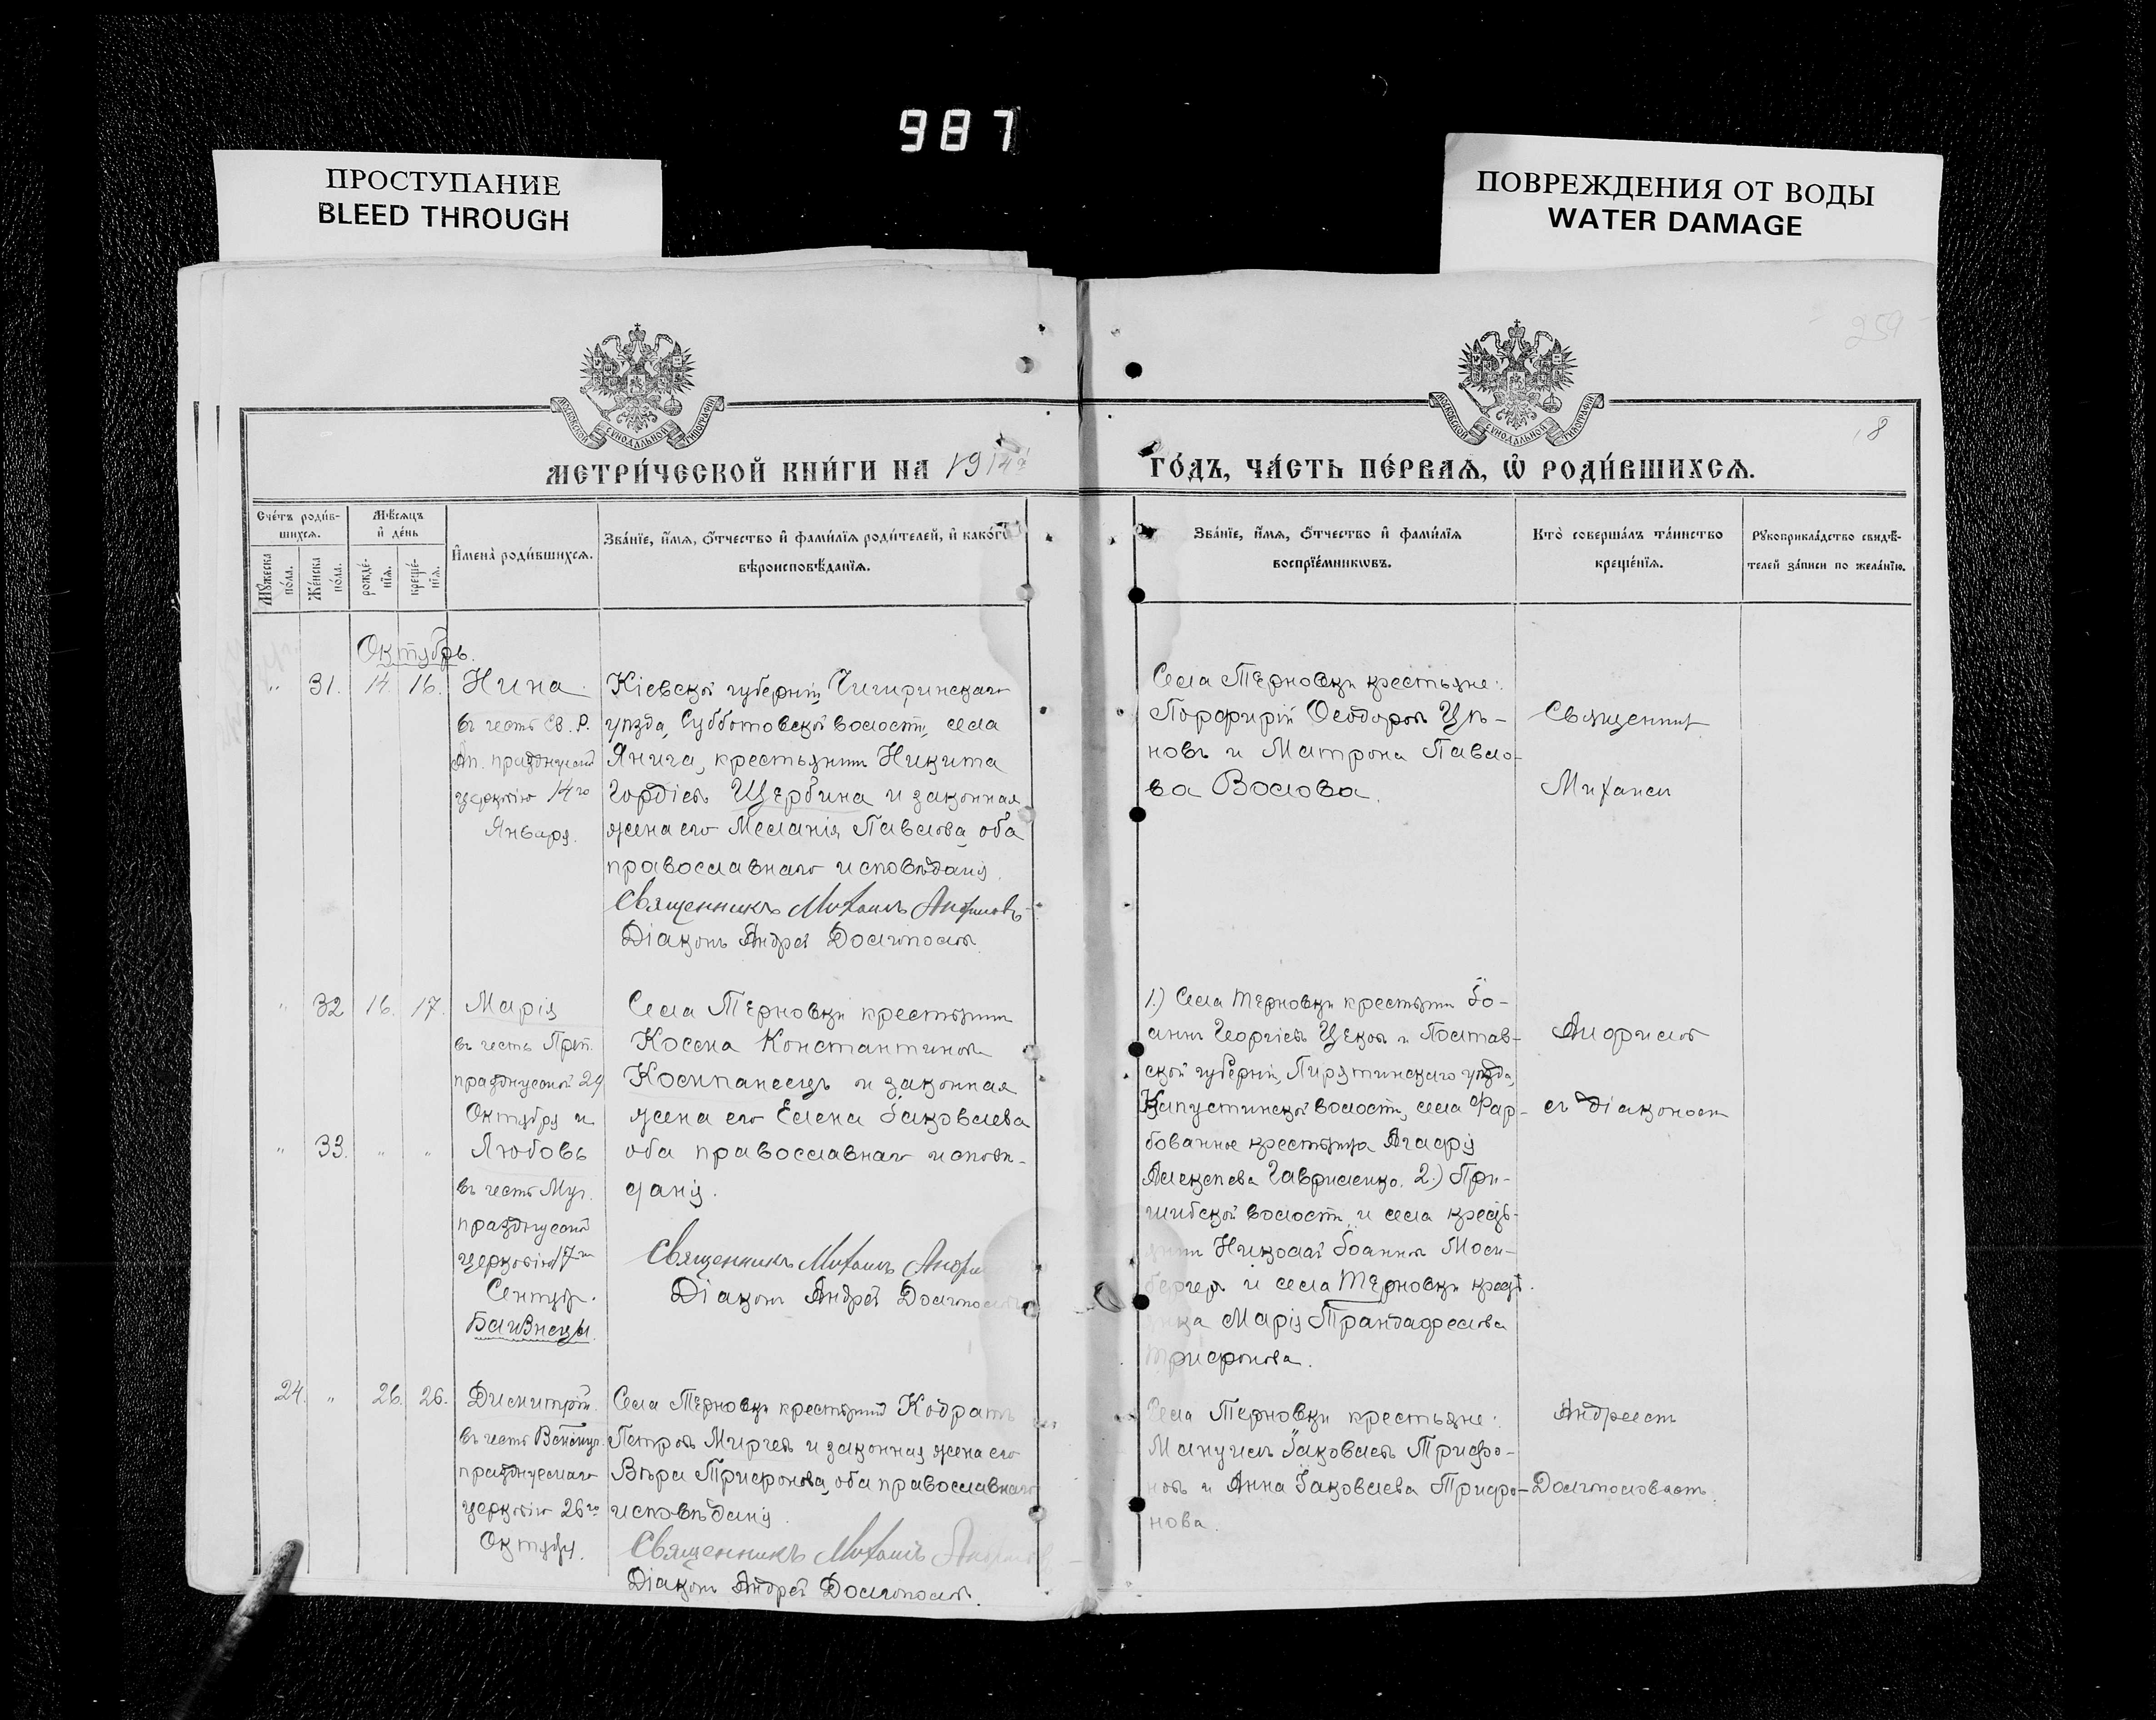 987
ПРОСТУПАНИЕ
BLEED THROUGH
ПОВРЕЖДЕНИЯ ОТ ВОДЫ
WATER DAMAGE
259
МОСКОВСКОЙ СУНОДАЛЬНОЙ ТИПОГРАФІИ
МОСКОВСКОЙ СУНОДАЛЬНОЙ ТИПОГРАФІИ
8
МЕТРИ́ЧЕСКОЙ КНИ́ГИ НА 1914 г
ГО́ДЪ, ЧА́СТЬ ПЕ́РВАѦ, Ѿ РОДИ́ВШИХСѦ.
Сче́тъ роди́в-
шихсѧ.
Мѣ́сѧцъ
и҆ де́нь
Мꙋ́жеска по́ла.
Же́нска по́ла.
рожде́-
нїѧ.
креще́-
нїѧ.
И҆мена̀ роди́вшихсѧ.
Зва́нїе, и҆́мѧ, ѻ҆́тчество и҆ фами́лїѧ роди́телей, и҆ како́гѡ
вѣроисповѣ́данїѧ.
Зва́нїе, и҆́мѧ, ѻ҆́тчество и҆ фами́лїѧ
воспрїе́мникѡвъ.
Кто̀ соверша́лъ та́инство
креще́нїѧ.
Рꙋкоприкла́дство свидѣ́-
телей за́писи по жела́нїю.
Октябрь.
" 31. 14. 16. Нина
въ честь Св. Р.
Ап. празднуемой
церковію 14го
Января.
Кіевской губерніи, Чигиринскаго
уѣзда, Субботовской волости, села
Янича, крестьянинъ Никита
Гордіевъ Щербина и законная
жена его Меланія Павлова, оба
православнаго исповѣданія.
Священникъ Михаилъ Анфимовъ
Діаконъ Андрей Долгополовъ.
Села Терновки крестьяне:
Порфирій Ѳеодоровъ Цѣ-
новъ и Матрона Павло-
ва Волова.
Священникъ
Михаилъ
" 32 16. 17. Марія
въ честь Преп.
празднуемой 29
Октября и
" 33. " " Любовь
въ честь Муч.
празднуемой
церковію 17го
Сентяр.
Близнецы.
Села Терновки крестьянинъ
Косма Константиновъ
и законная
жена его Елена Іаковлева
оба православнаго исповѣ-
данія.
Священникъ Михаилъ Анфи
Діаконъ Андрей Долгополовъ
1.) Села Терновки крестьянинъ Іо-
аннъ Георгіевъ Цековъ и Полтав-
ской губерніи, Пирятинскаго уѣзда,
Капустинской волости, села Фар-
бованное крестьянка Агафія
Алексѣева Гавриленко. 2.) При-
шибской волости и села кресть-
янинъ Николай Іоанновъ
и села Терновки крест.
янка Марія Трандафилова
Трифонова.
Анфимовъ
съ діакономъ
24. " 26. 26. Димитрій.
въ честь Великом.
празднуемаго
церковію 26го
Октября.
Села Терновки крестьянинъ Кодратъ
Петровъ Мирчевъ и законная жена его
Вѣра Трифонова, оба православнаго
исповѣданія.
Священникъ Михаилъ Анфимовъ
Діаконъ Андрей Долгополовъ.
Села Терновки крестьяне:
Мануилъ Іаковлевъ Трифо-
новъ и Анна Іаковлева Трифо-
нова.
Андреемъ
Долгополовымъ.